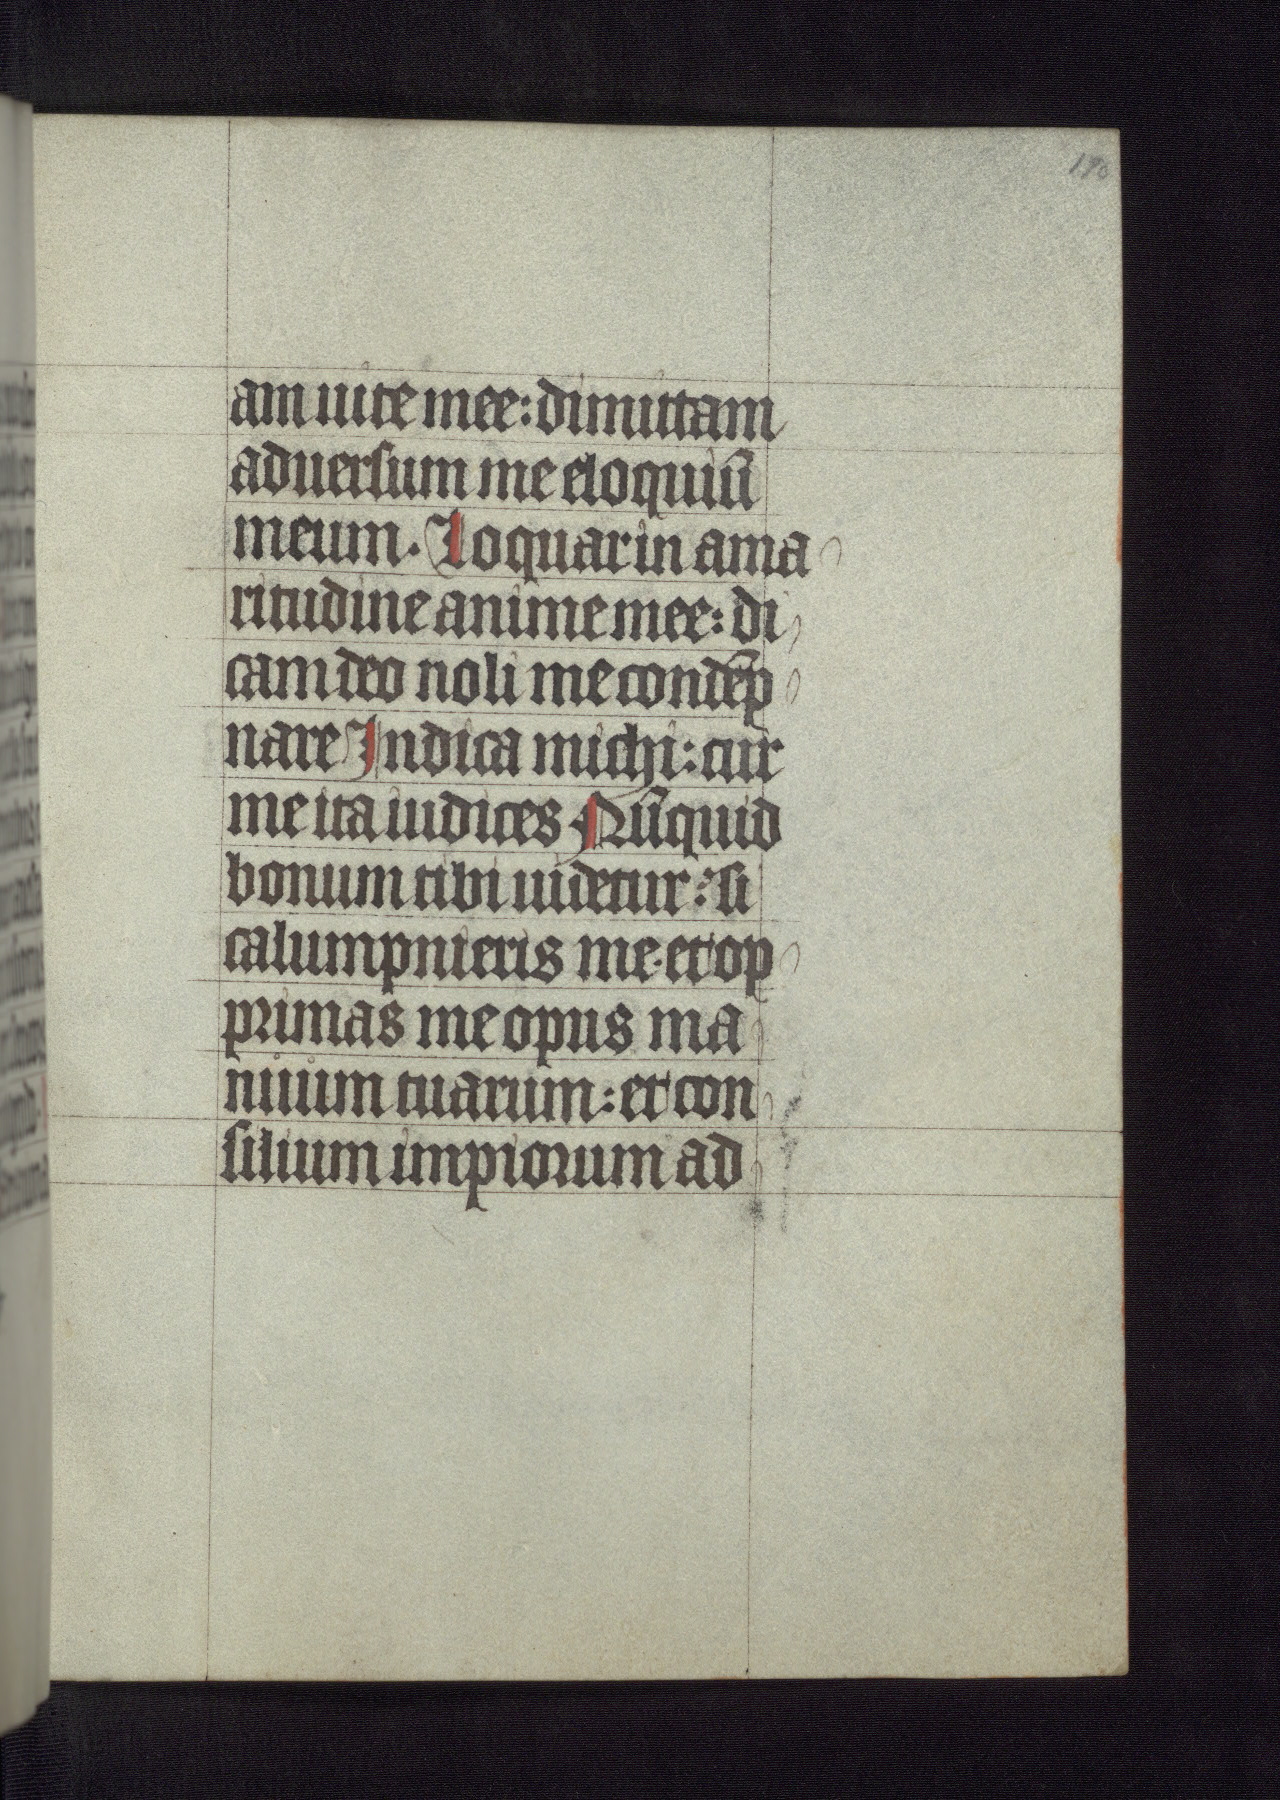 190
am uite mee: dimittam
aduersum me eloquiū
meum. Loquar in ama
ritudine anime mee: di
cam deo noli me condēp
nare Indica michi: cur
me ita iudices Nūquid
bonum tibi uidetur: si
calumpnieris me. et op
primas me opus ma
nuum tuarum: et con
silium impiorum ad